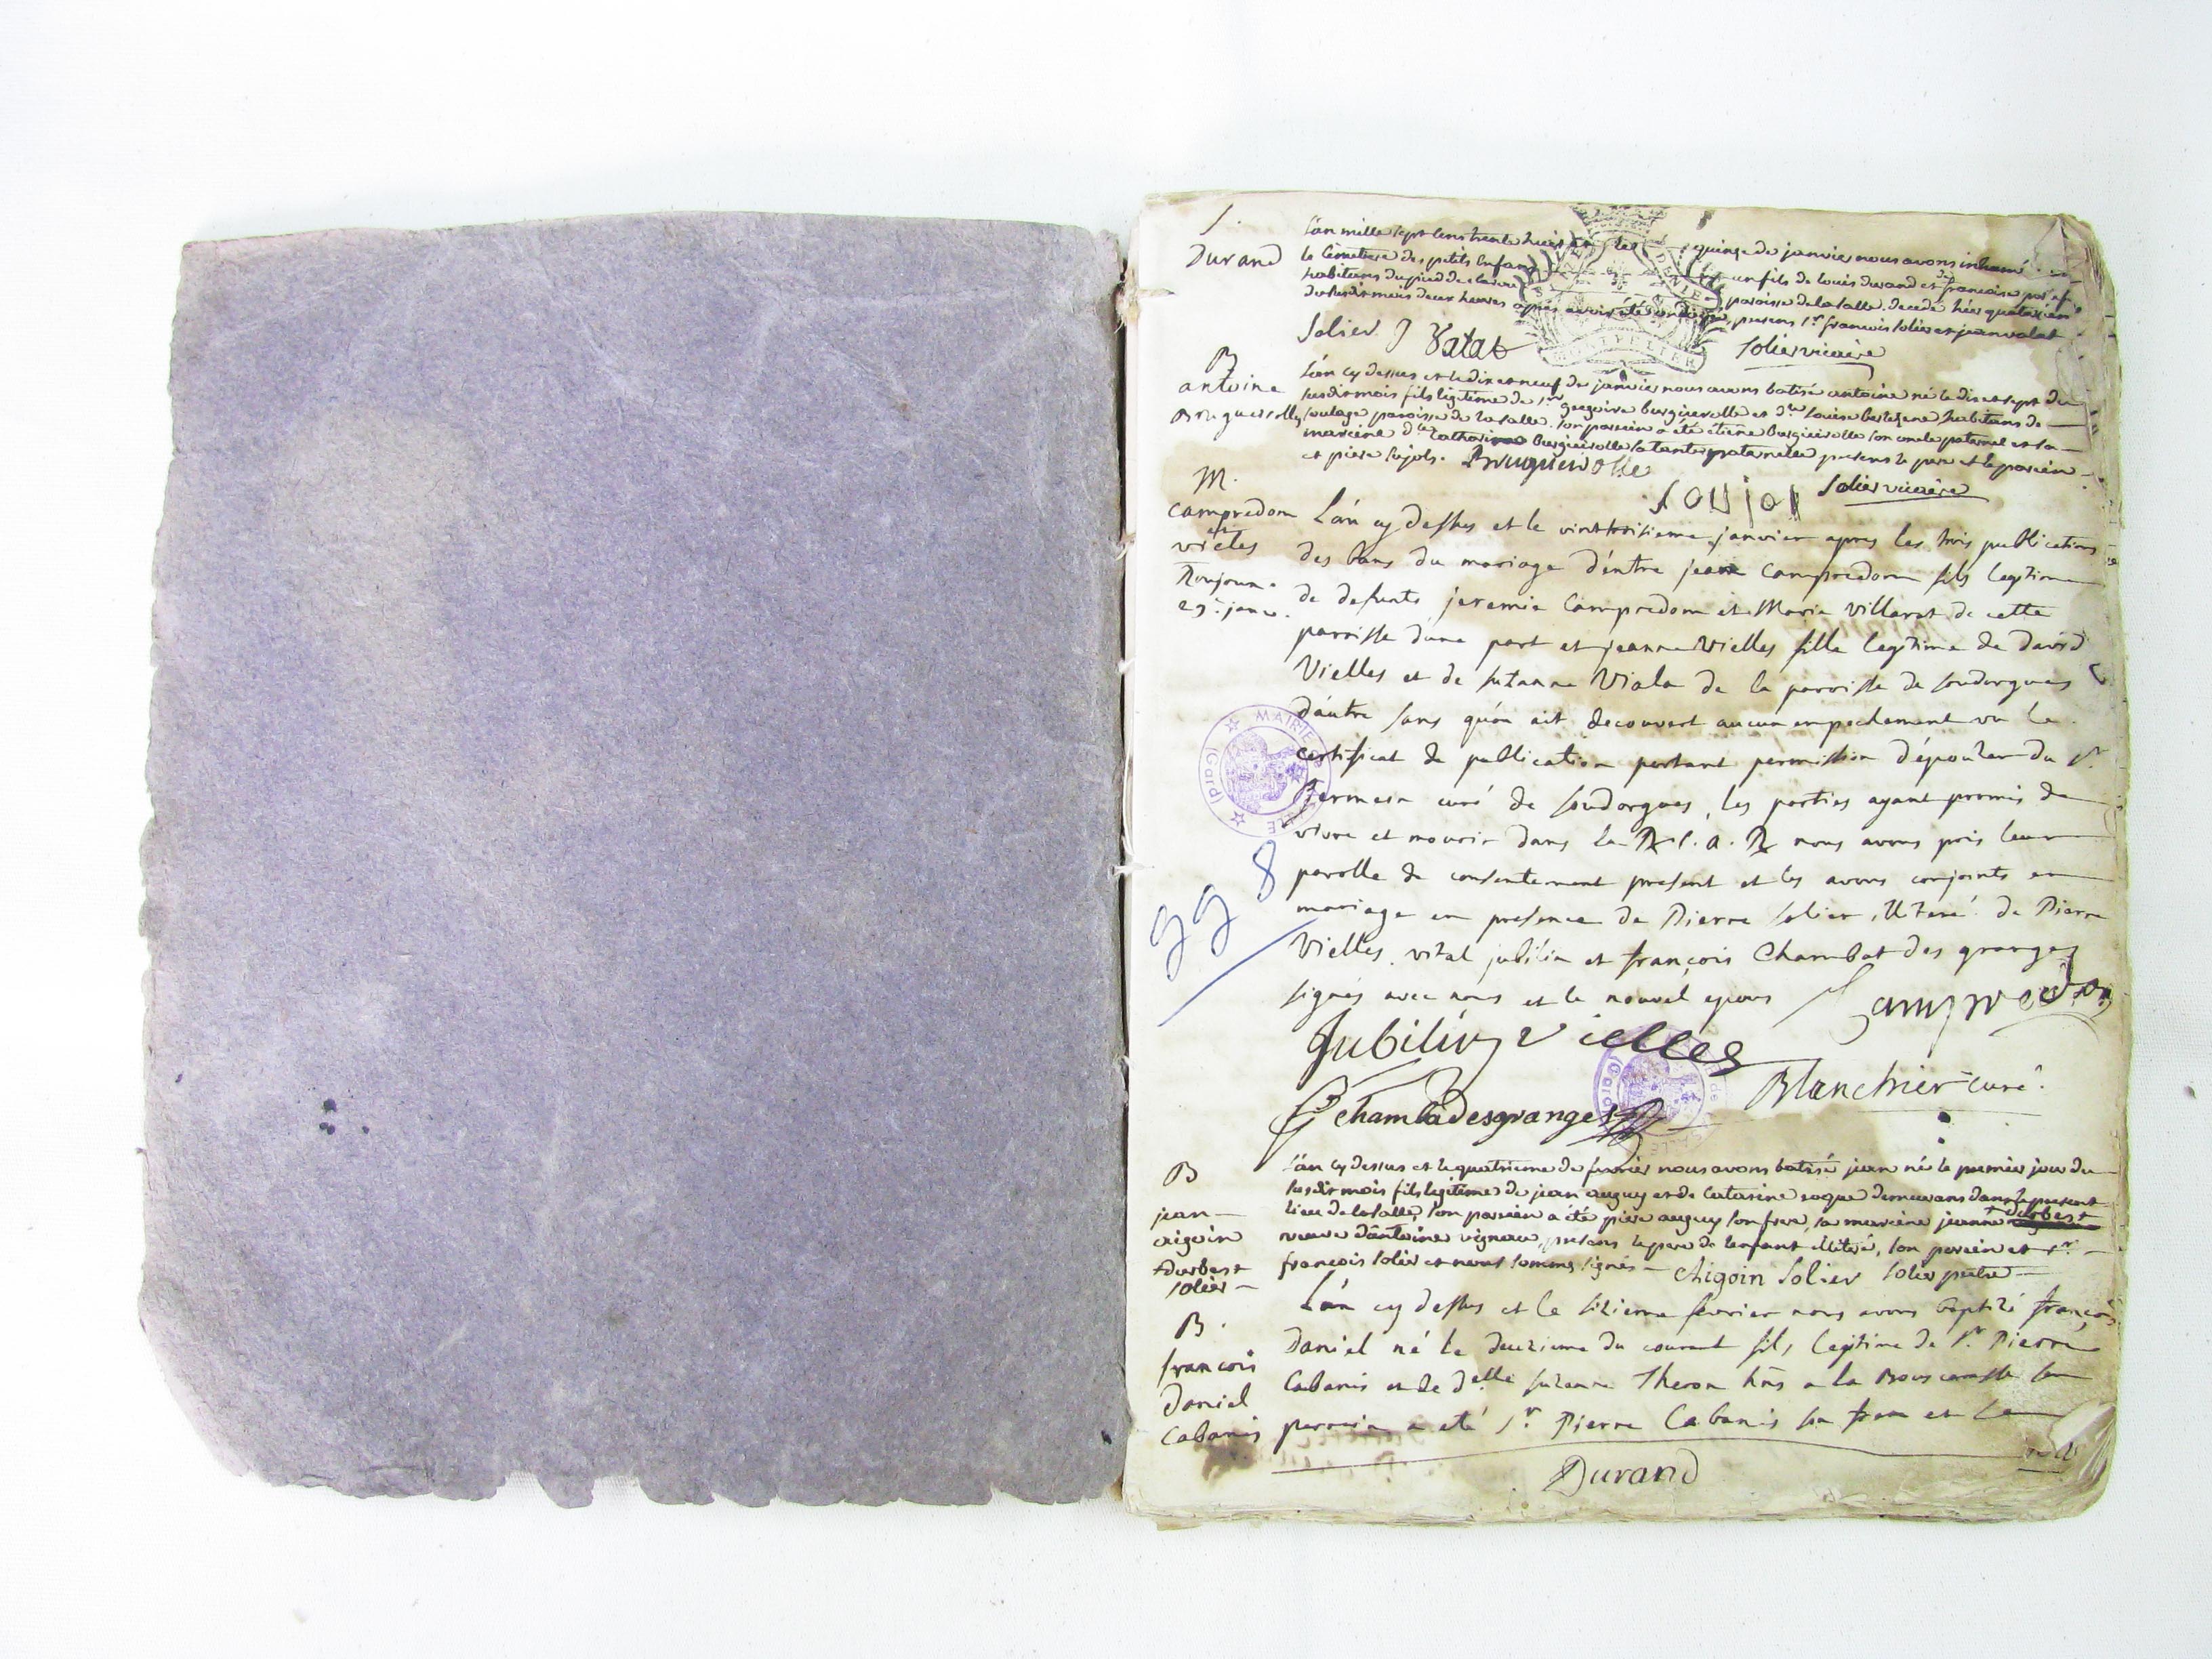 S.
Durand
L'an mille sept cens trente huit et le quinze de janvier nous avons inhumé
le Cemetiere des petits Enfans un fils de louis durand et de francoise
habitans du pied de paroisse de lasalle. decedé hier
du susdit mois deux heures après avoir été presens Sr francois solier et jean valat
Solier J Valat Solier vicaire
B
antoine
Bruguerolle
L'an cy dessus et le dix et neuf de janvier nous avons batisé antoine né le dix et sept du
susdit mois fils legitime de Sr gregoire burguerolle et dlle louise habitans de
soulage paroisse de lasalle. son parrein a été etiene burguierolle son oncle paternel et sa
mareine dlle Catharine burguierolle sa tante paternelle presens le pere et le parein
et piere Sujols. Bruguerolle
Soujol Solier vicaire
M.
Campredom
et
vielles
L'an cy dessus et le vint troisieme janvier apres les trois publications
des bans du mariage d'entre jean Campredom fils legitime
de defunts jeremie Campredom et Marie Villaret de cette
parroisse d'une part et jeanne Vielles fille legitime de David
Vielles et de suzanne Viala de la parroisse de soudorgues
d'autre sans qu'on ait decouvert aucun empechement vu le
certificat de publication portant permission d'épouser du Sr
curé de soudorgues, les parties ayant promis de
vivre et mourir dans la R. C. A. R nous avons pris leur
parolle de consentement present et les avons conjoints en
mariage en presence de Pierre solier, illiteré. de Pierre
Vielles, vital jubilin et françois Chambat des granges
signés avec nous et le nouvel epoux Campredon
Jubilin Vielles
Chambadesgranges Blanchier curé.
MAIRIE DE LASALLE (Gard)
gg 8
B
jean
aigoin
durbest
solier
L'an cy dessus et le quatrieme de fevrier nous avons batisé jean né le premier jour du
susdit mois fils legitime de jean auguy et de Catarine roque demeurans dans le present
lieu de lasalle, son parrein a été piere auguy son frere, sa mareine jeanne durbest
veuve d'antoine vigneau, presens le pere de lenfant illiteré, son parein et Sr
francois solier et nous sommes signés Aigoin Solier Solier pretre
B.
francois
Daniel
Cabanis
L'an cy dessus et le sizieme fevrier nous avons baptizé françois
Daniel né le deuzieme du courant fils legitime de Sr Pierre
Cabanis et de delle suzanne Theron hns a la son
parrein a eté Sr. Pierre Cabanis son frere et la
Durand